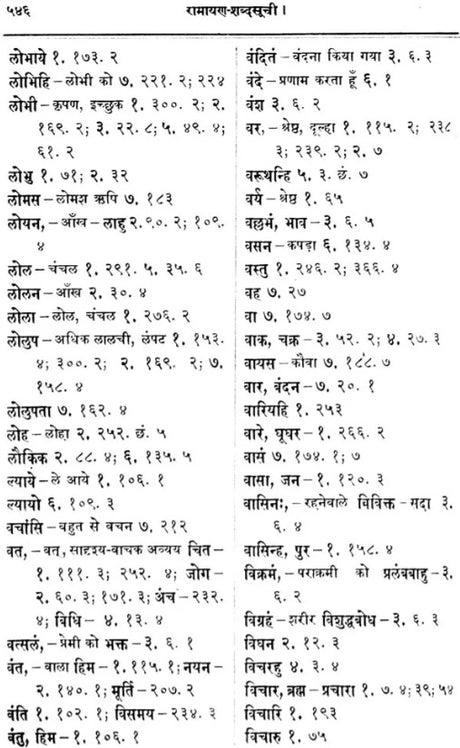 ५४६
रामायण-शब्दसूची।
लोभाये १. १७३. २
लोभिहि – लोभी को ७. २२१. २; २२४
लोभी – कृपण, इच्छुक १. ३००. २; २.
१६९. २; ३. २२. ८; ५. ४९. ४;
६१. २
लोभु १. ७१; २. ३२
लोमस – लोमश ऋषि ७. १८३
लोयन, – आँख – लाहु २. ९०. २; १०९.
४
लोल – चंचल १. २९१. ५. ३५. ६
लोलन – आँख २. ३०. ४
लोला – लोल, चंचल १. २७६. २
लोलुप – अधिक लालची, लंपट १. १५३.
४; ३००. २; २. १६९. २; ७.
१५८. ४
लोलुपता ७. १६२. ४
लोह – लोहा २. २५२. छं. ५
लौकिक २. ८८. ४; ६. १३५. ५
ल्याये – ले आये १. १०६. १
ल्यायो ६. १०९. ३
वचांसि – बहुत से वचन ७. २१२
वत, – वत, सादृश्य-वाचक अव्यय चित –
१. १११. ३; २५२. ४; जोग –
२. ६०. ३; १७१. ३; अंच – २३२.
४; विधि – ४. १३. ४
वत्सलं, – प्रेमी को भक्त – ३. ६. १
वंत, – वाला हिम – १. ११५. १; नयन –
२. १४०. १; मूर्ति – २०७. २
वंति १. १०२. १; विसमय – २३४. ३
वंतु, हिम – १. १०६. १
वंदितं – वंदना किया गया ३. ६. ३
वंदे – प्रणाम करता हूँ ६. १
वंश ३. ६. २
वर, – श्रेष्ठ, दूल्हा १. ११५. २; २३८
३; २३९. २; २. ७
वरूथन्हि ५. ३. छं. ७
वर्य – श्रेष्ठ १. ६५
वल्लभं, भाव – ३. ६. ५
वसन – कपड़ा ६. १३४. ४
वस्तु १. २४६. २; ३६६. ४
वह ७. २७
वा ७. १७४. ७
वाक, चक्र – ३. ५२. २; ४. २७. ३
वायस – कौवा ७. १८८. ७
वार, बंदन – ७. २०. १
वारियहि १. २५३
वारे, घूघर – १. २६६. २
वासं ७. १७४. १; ७
वासा, जन – १. १२०. ३
वासिनः, – रहनेवाले विविक्त – सदा ३.
६. ४
वासिन्ह, पुर – १. १५८. ४
विक्रमं, – पराक्रमी को प्रलंबबाहु – ३.
६. २
विग्रहं – शरीर विशुद्धबोध – ३. ६. ३
विघन २. १२. ३
विचरहु ४. ३. ४
विचार, ब्रह्म – प्रचारा १. ७. ४; ३९; ५४
विचारि १. १९३
विचारु १. ७५